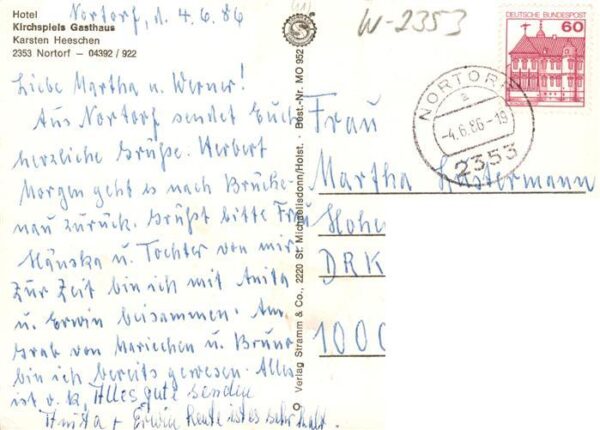 Hotel
Kirchspiels Gasthaus
Karsten Heeschen
2353 Nortorf – 04392 / 922
Nortorf, d. 4.6.86
Liebe Martha u. Werner!
Aus Nortorf sendet Euch
herzliche Grüße. Herbert
Morgen geht es nach Brücke-
nau zurück. Grüßt bitte Frau
Hänska u. Tochter von mir
Zur Zeit bin ich mit Anita
u. Erwin beisammen. Am
Grab von Mariechen u. Bruno
bin ich bereits gewesen. Alles
ist o.k. Alles gute senden
Anita + Erwin heute ist es sehr kalt.
Verlag Stramm & Co., 2220 St. Michaelisdonn/Holst. · Best.-Nr. MO 952
W-2353
DEUTSCHE BUNDESPOST
60
NORTORF
a
-4.6.86-19
2353
Frau
Martha
Hohe
DRK
1000